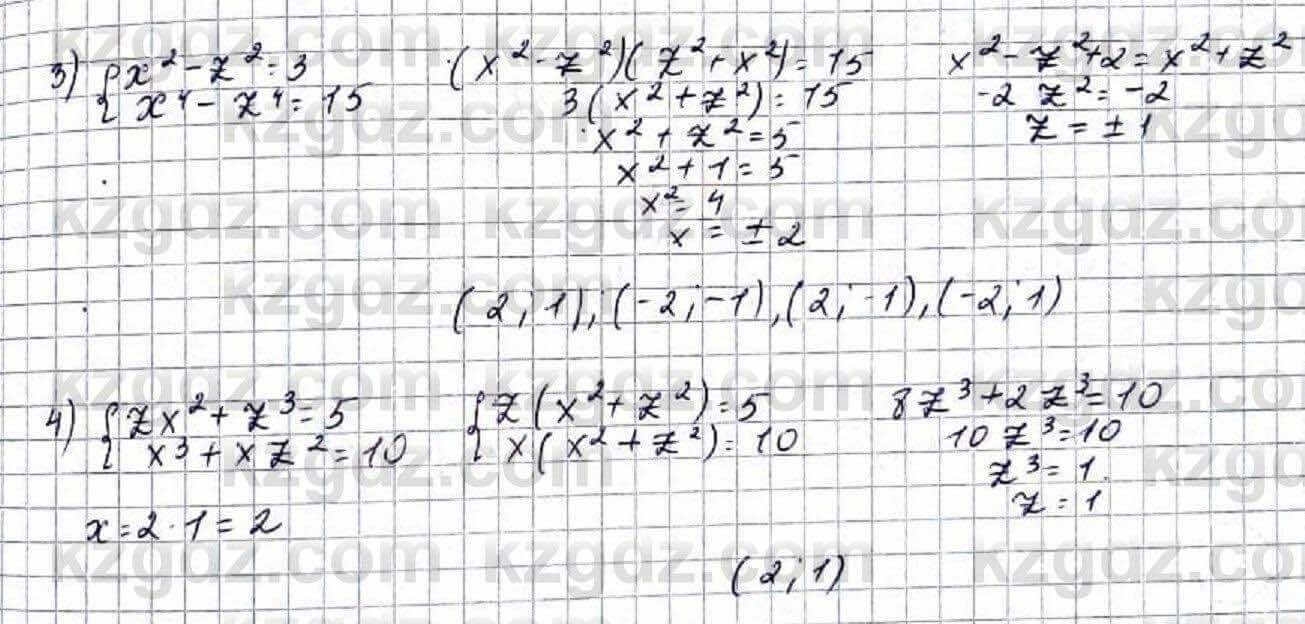 3) { x² - z² = 3
x⁴ - z⁴ = 15
(x² - z²)(z² + x²) = 15
3(x² + z²) = 15
x² + z² = 5
x² + 1 = 5
x² = 4
x = ± 2
x² - z² + 2 = x² + z²
-2 z² = -2
z = ± 1
(2; 1); (-2; -1), (2; -1), (-2; 1)
4) { zx² + z³ = 5
x³ + xz² = 10
{ z(x² + z²) = 5
x(x² + z²) = 10
8z³ + 2z³ = 10
10 z³ = 10
z³ = 1.
z = 1
x = 2 · 1 = 2
(2; 1)
kzgdz.com